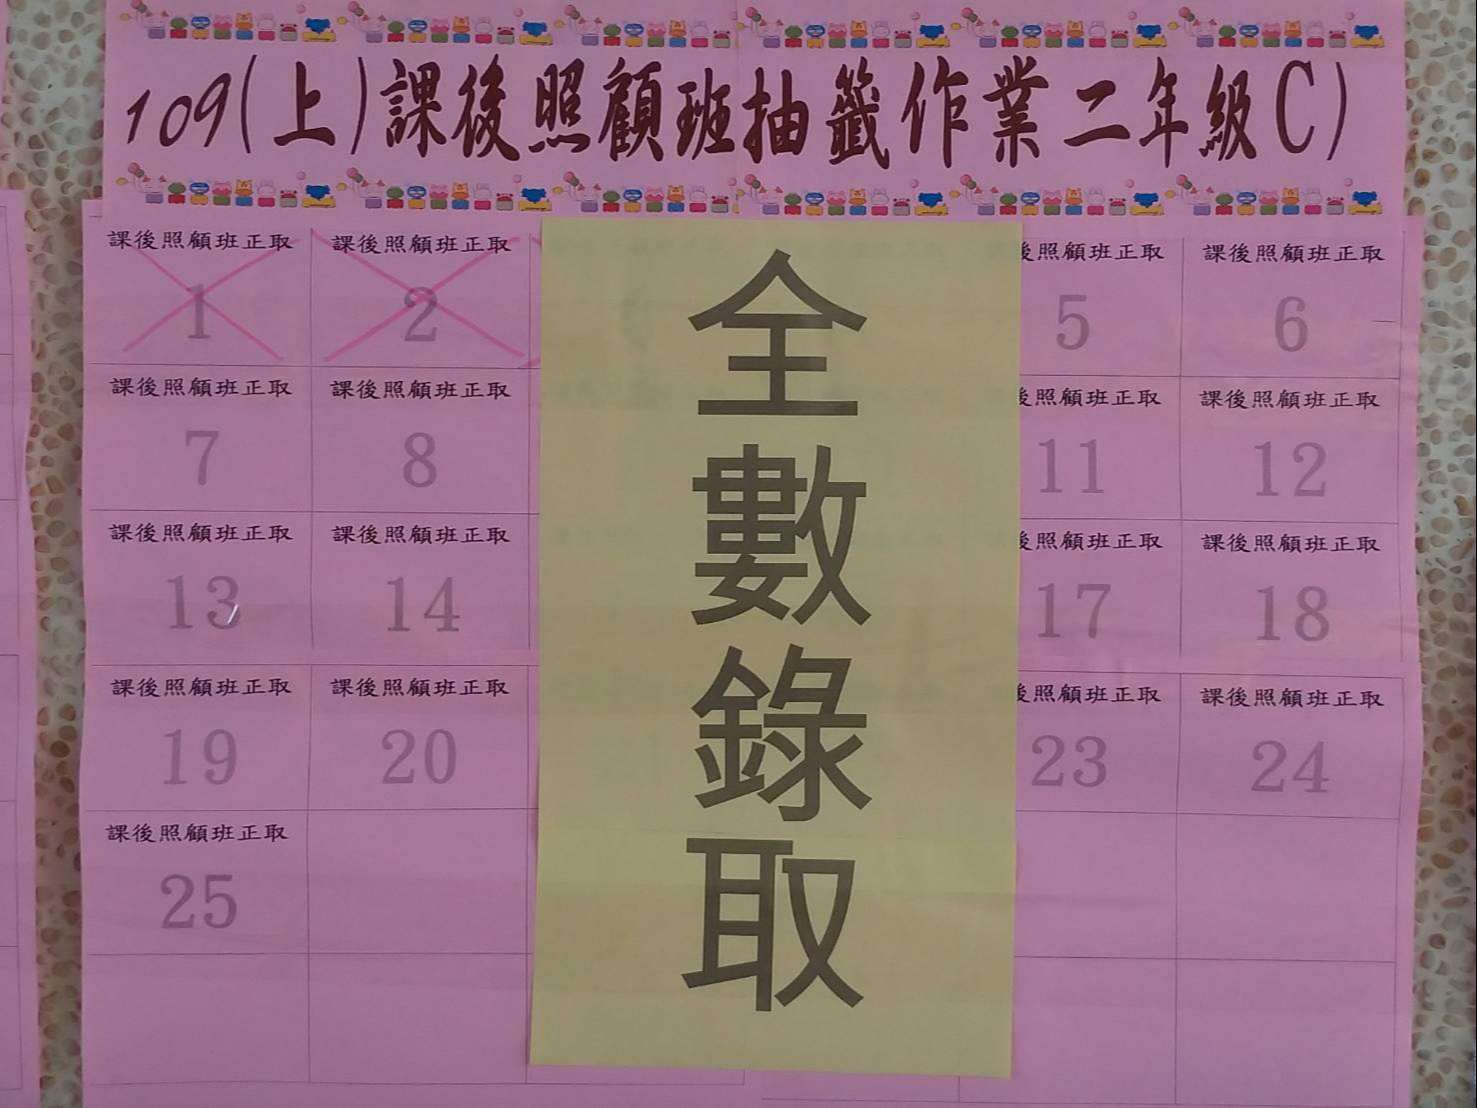 109(上)課後照顧班抽籤作業二年級C)
課後照顧班正取
1
課後照顧班正取
2
後照顧班正取
5
課後照顧班正取
6
課後照顧班正取
7
課後照顧班正取
8
後照顧班正取
11
課後照顧班正取
12
課後照顧班正取
13
課後照顧班正取
14
後照顧班正取
17
課後照顧班正取
18
課後照顧班正取
19
課後照顧班正取
20
後照顧班正取
23
課後照顧班正取
24
課後照顧班正取
25
全數錄取